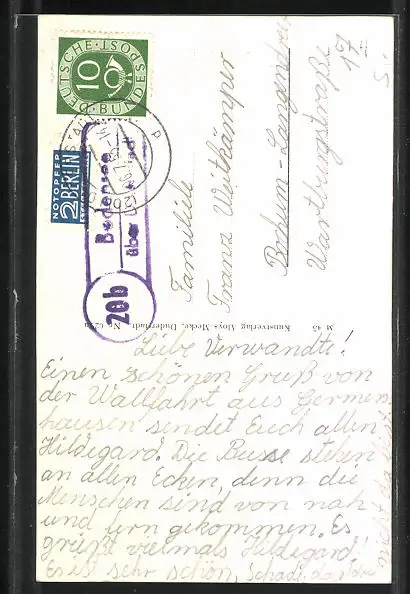 DEUTSCHE BUNDESPOST
10
NOTOPFER
2 BERLIN
STEUERMARKE
20b
Bodensee
über
Familie
Franz Weitkämper
Bochum-Langendreer
Wartburgstraße
17
Kunstverlag Aloys Mecke, Duderstadt
Liebe Verwandte!
Einen schönen Gruß von
der Wallfahrt aus Germers-
hausen sendet Euch allen
Hildegard. Die Busse stehen
an allen Ecken, denn die
Menschen sind von nah
und fern gekommen. Es
grüßt vielmals Hildegard!
Es ist sehr schön, Schade, daß Ihr
nicht da seid